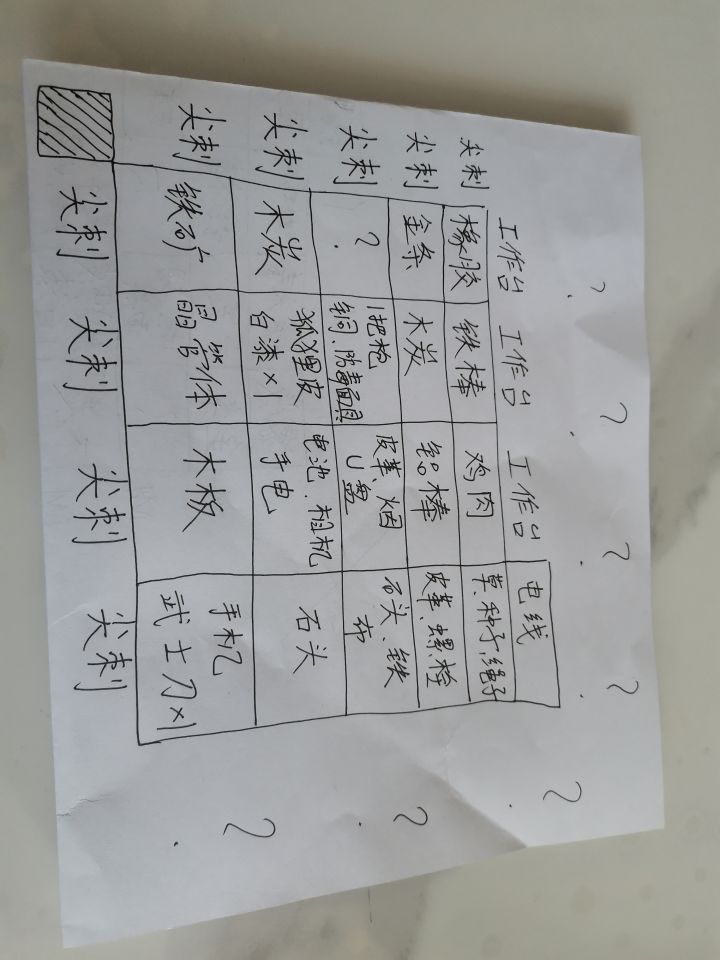 ? ? ? ?
工作台 工作台 工作台 电线 ?
尖刺 橡胶 铁棒 鸡肉 草、种子、绳子
尖刺 金条 木炭 铝棒 皮革、螺栓
尖刺 ? 1把枪 皮革、烟 石头、铁 ?
铜、防毒面具 U盘 布
尖刺 木炭 狐狸皮 电池、相机 石头
白漆×1 手电
尖刺 铁矿 晶管体 木板 手机 ?
武士刀×1
尖刺 尖刺 尖刺 尖刺